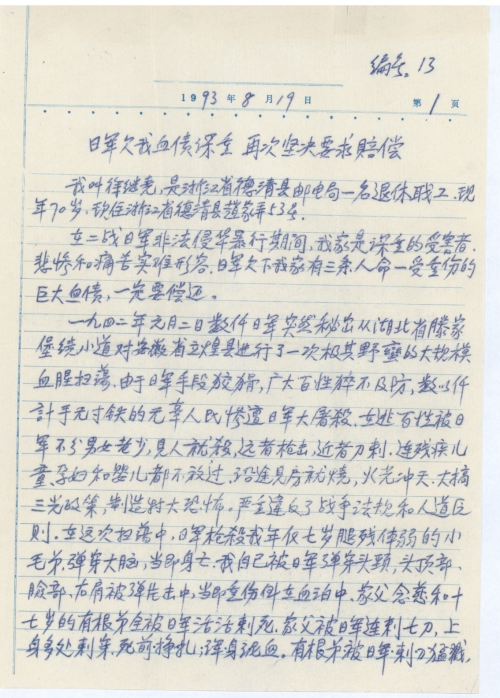 编号. 13
1993年8月19日 第1页
日军欠我血债深重 再次坚决要求赔偿
我叫徐继尧,是浙江省德清县邮电局一名退休职工.现
年70岁,现住浙江省德清县趙家弄53号.
在二战日军非法侵华暴行期间,我家是深重的受害者.
悲惨和痛苦实难形容.日军欠下我家有三条人命一受重伤的
巨大血债,一定要偿还。
一九四二年元月二日数仟日军突然秘出从湖北省滕家
堡绕小道对安徽省立煌县进行了一次极其野蠻的大规模
血腥扫荡,由于日军手段狡猾,广大百性猝不及防,数以仟
計手无寸铁的无辜人民惨遭日军大屠殺.在逃百性被日
军不分男女老少,見人就殺,远者枪击,近者刀刺.连残疾儿
童.孕妇和婴儿都不放过,沿途見房就烧,火光冲天.大搞
三光政策,制造特大恐怖。严重違反了战争法规和人道原
则.在这次扫荡中,日军枪殺我年仅七岁腿残体弱的小
毛弟,弹穿大脑,当即身亡.我自己被日军弹穿头頸,头顶部.
脸部.右肩被弹片击中,当即重伤倒在血泊中.家父念慈和十
七岁的有根弟全被日军活活刺死.家父被日軍連刺七刀,上
身多处刺穿,死前掙扎;浑身鲜血。有根弟被日軍刺刀猛戳,